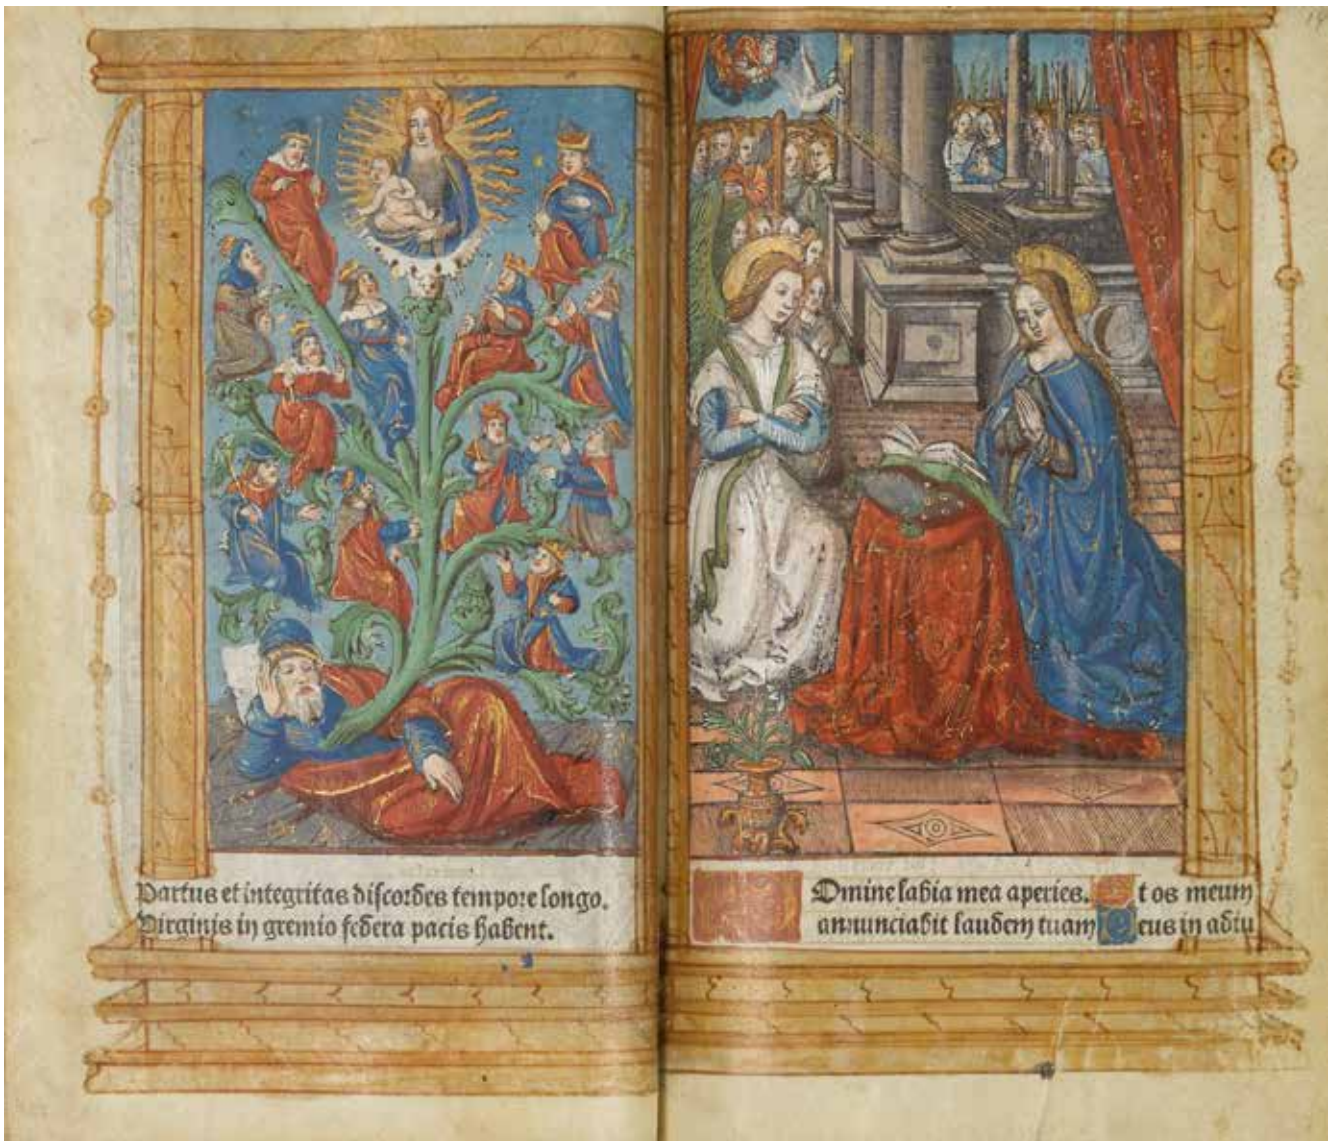 Partus et integritas discordes tempore longo.
Virginis in gremio federa pacis habent.
Domine labia mea aperies. Et os meum
annunciabit laudem tuam Deus in adiu